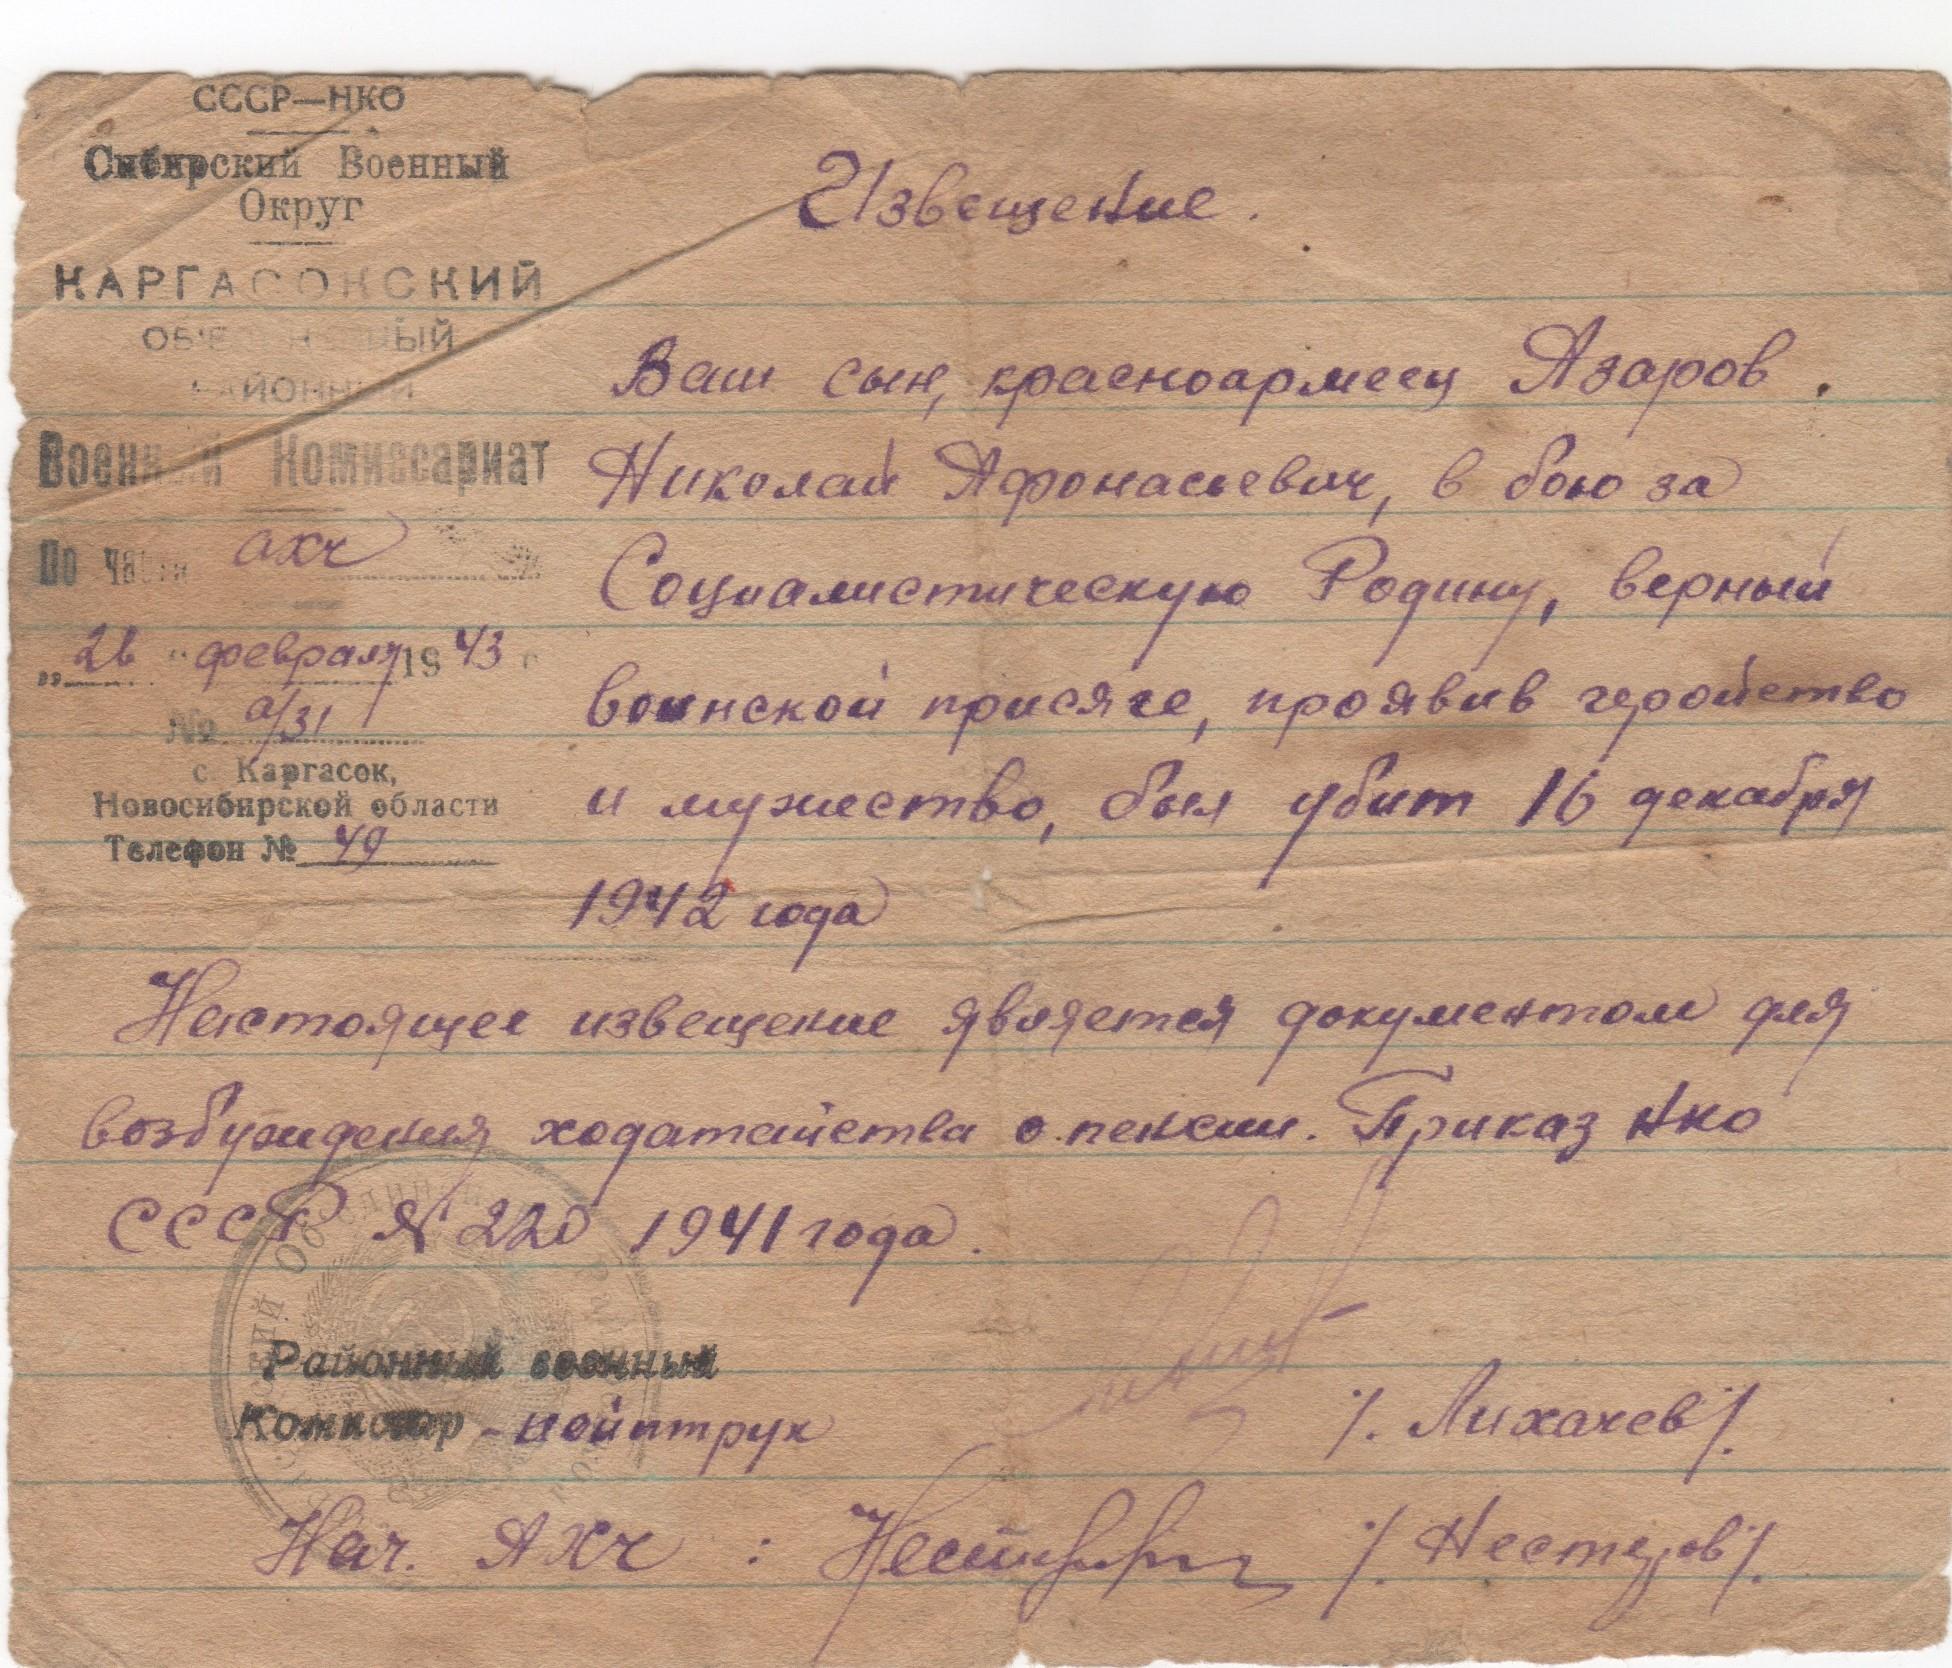 СССР—НКО
Сибирский Военный
Округ
КАРГАСОКСКИЙ
ОБ'ЕДИНЕННЫЙ
РАЙОННЫЙ
Военный Комиссариат
По части АХЧ
„26" февраля 1943 г
№ а/31
с. Каргасок,
Новосибирской области
Телефон № 49
Извещение.
Ваш сын, красноармеец Азаров
Николай Афонасьевич, в бою за
Социалистическую Родину, верный
воинской присяге, проявив геройство
и мужество, был убит 16 декабря
1942 года
Настоящее извещение является документом для
возбуждения ходатайства о пенсии. Приказ НКО
СССР № 220 1941 года.
Районный военный
Комиссар -
/. Лихачев /.
Нач. АХЧ : /. Нестеров /.